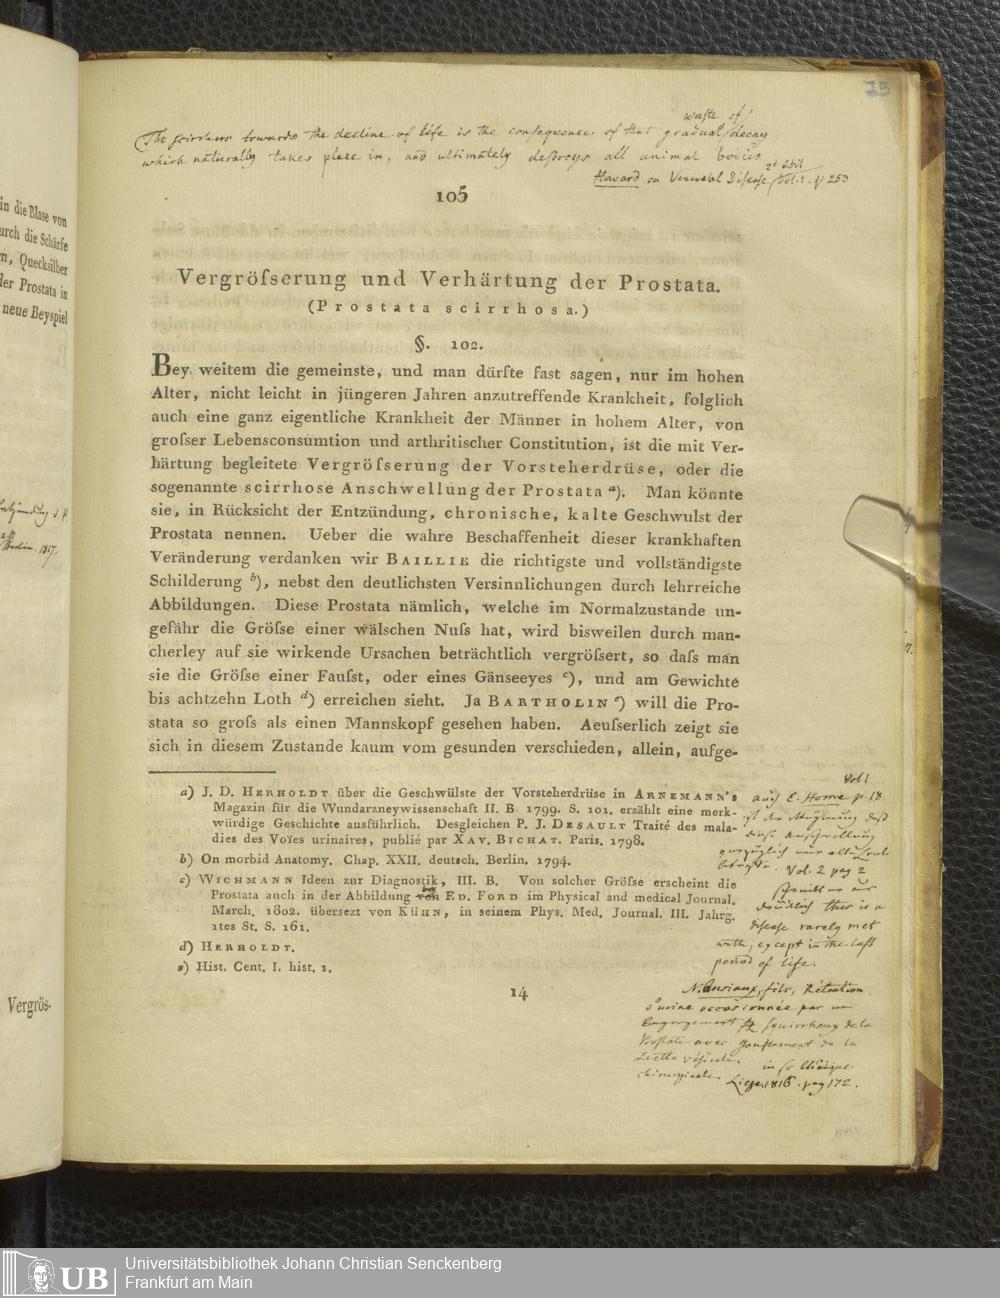 75
waste of
The scirrhus towards the decline of life is the consequence of that gradual decay
which naturally takes place in, and ultimately destroys all animal bodies
2d Edit
Howard on Venereal Disease Vol. 1. p 253
105
Vergröſserung und Verhärtung der Prostata.
(Prostata scirrhosa.)
§. 102.
Bey weitem die gemeinste, und man dürfte fast sagen, nur im hohen
Alter, nicht leicht in jüngeren Jahren anzutreffende Krankheit, folglich
auch eine ganz eigentliche Krankheit der Männer in hohem Alter, von
groſser Lebensconsumtion und arthritischer Constitution, ist die mit Ver-
härtung begleitete Vergröſserung der Vorsteherdrüse, oder die
sogenannte scirrhose Anschwellung der Prostata a). Man könnte
sie, in Rücksicht der Entzündung, chronische, kalte Geschwulst der
Prostata nennen. Ueber die wahre Beschaffenheit dieser krankhaften
Veränderung verdanken wir BAILLIE die richtigste und vollständigste
Schilderung b), nebst den deutlichsten Versinnlichungen durch lehrreiche
Abbildungen. Diese Prostata nämlich, welche im Normalzustande un-
gefähr die Gröſse einer wälschen Nuſs hat, wird bisweilen durch man-
cherley auf sie wirkende Ursachen beträchtlich vergröſsert, so daſs man
sie die Gröſse einer Fauſst, oder eines Gänseeyes c), und am Gewichte
bis achtzehn Loth d) erreichen sieht. Ja BARTHOLIN e) will die Pro-
stata so groſs als einen Mannskopf gesehen haben. Aeuſserlich zeigt sie
sich in diesem Zustande kaum vom gesunden verschieden, allein, aufge-
a) J. D. HERHOLDT über die Geschwülste der Vorsteherdrüse in ARNEMANN's
Magazin für die Wundarzneywissenschaft II. B. 1799. S. 101. erzählt eine merk-
würdige Geschichte ausführlich. Desgleichen P. J. DESAULT Traité des mala-
dies des Voïes urinaires, publié par XAV. BICHAT. Paris. 1798.
b) On morbid Anatomy. Chap. XXII. deutsch. Berlin. 1794.
c) WICHMANN Ideen zur Diagnostik, III. B. Von solcher Gröſse erscheint die
bey
Prostata auch in der Abbildung von ED. FORD im Physical and medical Journal.
March. 1802. übersezt von KÜHN, in seinem Phys. Med. Journal. III. Jahrg.
1tes St. S. 161.
d) HERHOLDT.
e) Hist. Cent. I. hist. 1.
14
Vol 1
auch E. Home p. 18
ist der Meynung daß
diese Anschwellung
vorzüglich nur alte
Vol. 2 pag 2
deutlich ther is a
disease rarely met
with, except in the last
period of life.
N. Ansiaux, fils, Rétention
d'urine occasionnée par un
Engorgement squirrheux de la
Prostate avec gonflement de la
Luette vésicale. in sr Clinique
chirurgicale. Liege. 1816. pag 172.
in die Blase von
urch die Schärfe
n, Quecksilber
der Prostata in
neue Beyspiel
Entzündung d. P.
Berlin. 1817.
Vergrös-
UB
Universitätsbibliothek Johann Christian Senckenberg
Frankfurt am Main